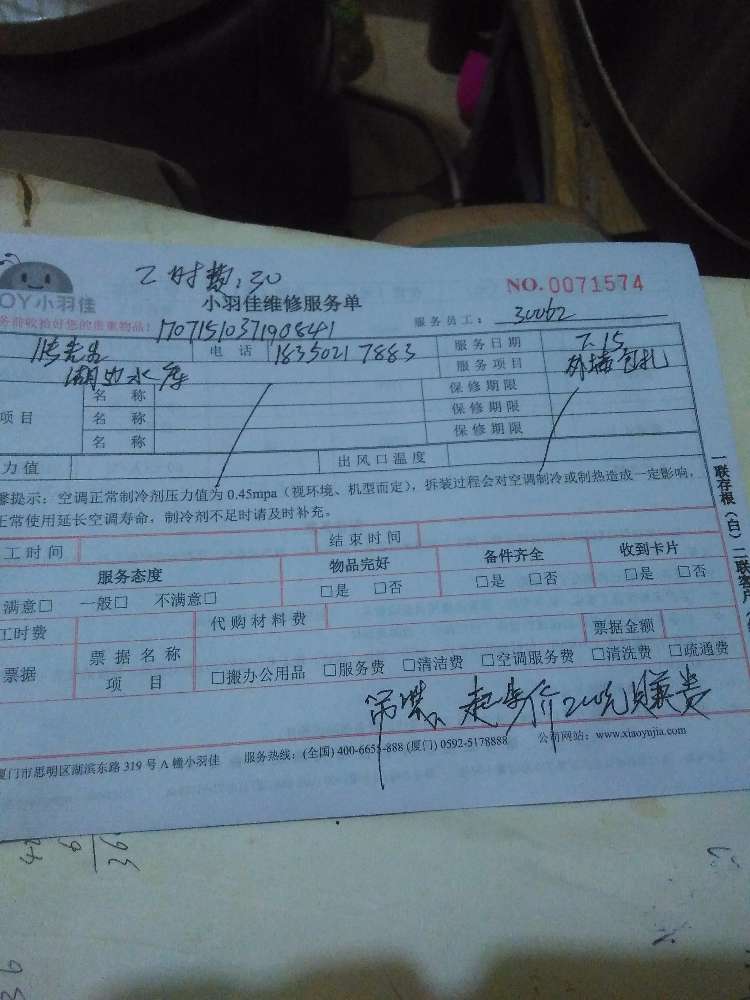 工时费:30
NO.0071574
OY小羽佳
小羽佳维修服务单
务前收拾好您的贵重物品!
1707151037190841
服务员工: 30062
电 话 18350217883 服务日期 7.15
湖边水库 服务项目 外墙包扎
项目 名 称 保修期限
名 称 保修期限
名 称 保修期限
力值 出风口温度
馨提示:空调正常制冷剂压力值为 0.45mpa(视环境、机型而定),拆装过程会对空调制冷或制热造成一定影响,
正常使用延长空调寿命,制冷剂不足时请及时补充。
工时间 结束时间
服务态度 物品完好 备件齐全 收到卡片
满意□ 一般□ 不满意□ □是 □否 □是 □否 □是 □否
工时费 代购材料费 票据金额
票据 票据名称
项 目 □搬办公用品 □服务费 □清洁费 □空调服务费 □清洗费 □疏通费
起步价200元 嫌贵
厦门市思明区湖滨东路 319 号 A 幢小羽佳 服务热线:(全国) 400-6655-888 (厦门) 0592-5178888 公司网站:www.xiaoyujia.com
一联存根(白)二联客户